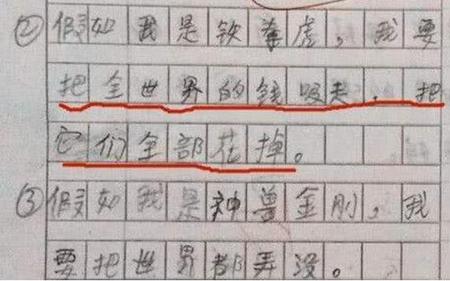 ②假如我是铁拳虎，我要
把全世界的钱吸走，把
它们全部花掉。
③假如我是神兽金刚，我
要把世界都弄没。